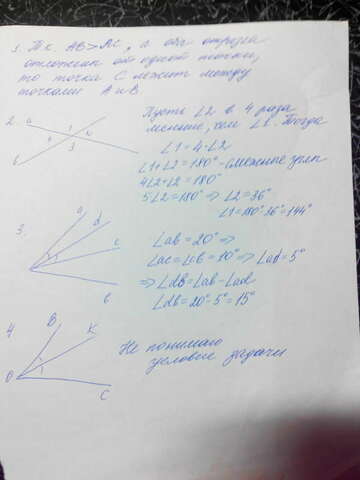 1. Т.к. AB>AC, а оба отрезка
отложены от одной точки,
то точка C лежит между
точками A и B
2. a
1
4
3
b
Пусть ∠2 в 4 раза
меньше, чем ∠1. Тогда
∠1 = 4·∠2
∠1+∠2 = 180° - смежные углы
4∠2+∠2 = 180°
5∠2 = 180° ⇒ ∠2 = 36°
∠1 = 180°-36° = 144°
3.
a
d
c
b
∠ab = 20° ⇒
∠ac = ∠cb = 10° ⇒ ∠ad = 5°
⇒ ∠db = ∠ab - ∠ad
∠db = 20° - 5° = 15°
4
B
K
O
C
Не понимаю
условие задачи